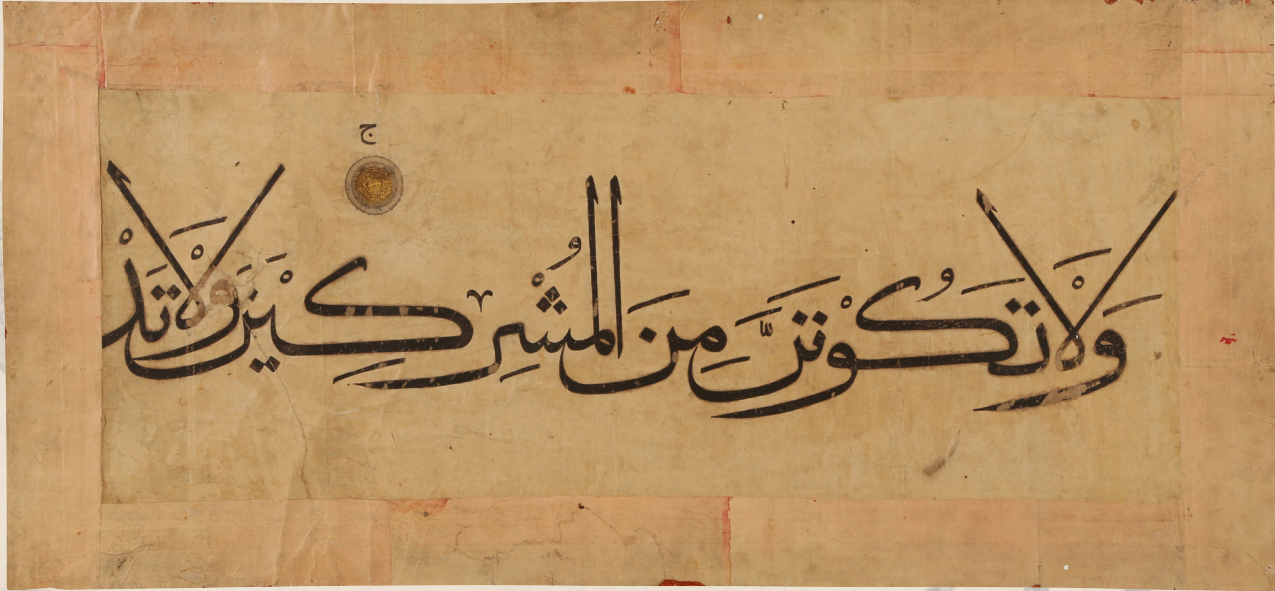 ج
وَلَا تَكُونَنَّ مِنَ الْمُشْرِكِينَ وَلَا تَدْ